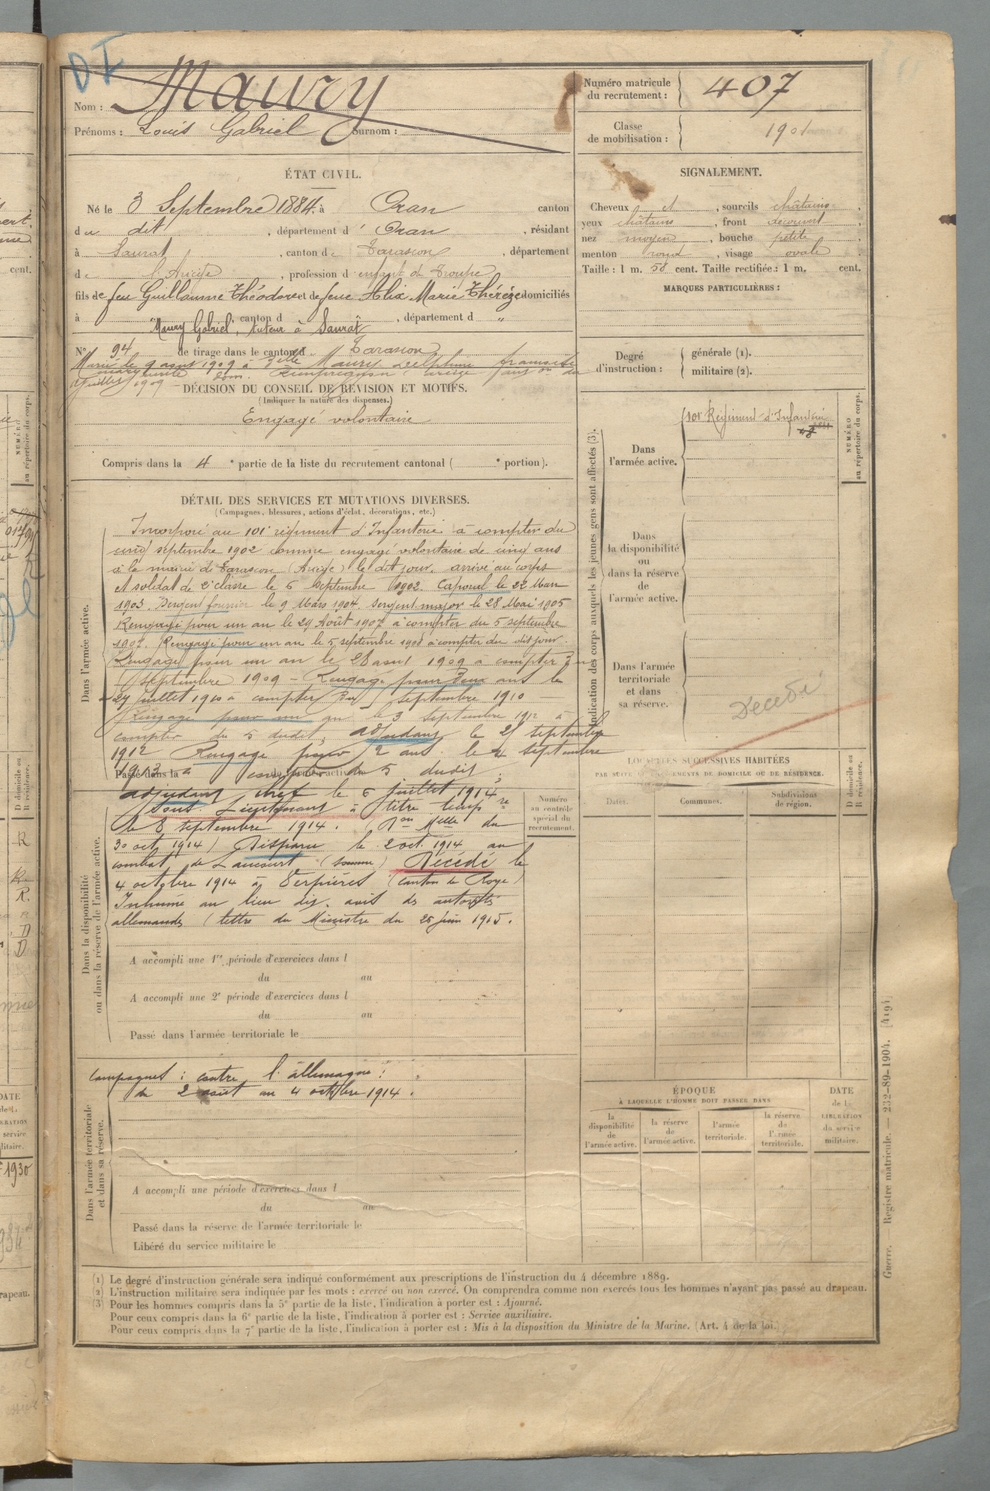 D I
Nom : Maury
Prénoms : Louis Gabriel Surnom :
Numéro matricule du recrutement : 407
Classe de mobilisation : 1901
ÉTAT CIVIL.
Né le 3 Septembre 1884, à Oran canton
du dit, département d'Oran, résidant
à Saurat, canton de Tarascon, département
de l'Ariège, profession d'enfant de troupe
fils de feu Guillaume Théodore et de feue Alix Marie Thérèze domiciliés
à , canton d , département d "
Maury Gabriel, tuteur à Saurat
N° 94 de tirage dans le canton d Tarascon
Marié le 9 août 1909 à Delle Maury Delphine
juillet 1909
SIGNALEMENT.
Cheveux et, sourcils châtains
yeux châtains, front découvert
nez moyen, bouche petite
menton rond, visage ovale
Taille : 1 m. 58 cent. Taille rectifiée : 1 m. cent.
MARQUES PARTICULIÈRES :
Degré d'instruction : générale (1). militaire (2).
DÉCISION DU CONSEIL DE RÉVISION ET MOTIFS.
(Indiquer la nature des dispenses.)
Engagé volontaire
Compris dans la 4e partie de la liste du recrutement cantonal ( e portion).
DÉTAIL DES SERVICES ET MUTATIONS DIVERSES.
(Campagnes, blessures, actions d'éclat, décorations, etc.)
Dans l'armée active.
Incorporé au 101e régiment d'Infanterie à compter du
cinq septembre 1902 comme engagé volontaire de cinq ans
à la mairie de Tarascon (Ariège) le dit jour, arrivé au corps
et soldat de 2e classe le 6 Septembre 1902. Caporal le 22 Mars
1903. Sergent fourrier le 9 Mars 1904. Sergent major le 28 Mai 1905
Rengagé pour un an le 29 Août 1907 à compter du 5 septembre
1907. Rengagé pour un an le 5 septembre 1908 à compter du dit jour.
Rengagé pour un an le 28 août 1909 à compter du
septembre 1909 - Rengagé pour deux ans le
29 juillet 1910 à compter du septembre 1910
Rengagé pour un an le 3 septembre 1912 à
compter du 5 dudit, adjudant le 21 septembre
1912 Rengagé pour 2 ans le 4 septembre
1913 à compter du 5 dudit ;
Passé dans la
adjudant chef le 6 juillet 1914
Sous Lieutenant à titre tempre
le 8 septembre 1914. (Don Mlle du
30 oct 1914) Disparu le 2 oct. 1914 au
combat de Laucourt (Somme) Décédé le
4 octobre 1914 à Verpières (canton de Roye)
Inhumé au lieu dit. avis des autorités
allemandes (lettre du Ministre du 25 juin 1915.
Dans la disponibilité ou dans la réserve de l'armée active.
Numéro au contrôle spécial du recrutement.
A accompli une 1re période d'exercices dans l
du au
A accompli une 2e période d'exercices dans l
du au
Passé dans l'armée territoriale le
campagnes : contre l'allemagne :
du 2 août au 4 octobre 1914.
Dans l'armée territoriale et dans sa réserve.
A accompli une période d'exercices dans l
du au
Passé dans la réserve de l'armée territoriale le
Libéré du service militaire le
Indication des corps auxquels les jeunes gens sont affectés (3).
NUMÉRO au répertoire du corps.
Dans l'armée active.
101e Régiment d'Infanterie
Dans la disponibilité ou dans la réserve de l'armée active.
Dans l'armée territoriale et dans sa réserve.
Décédé
LOCALITÉS SUCCESSIVES HABITÉES
PAR SUITE DE CHANGEMENTS DE DOMICILE OU DE RÉSIDENCE.
Dates. Communes. Subdivisions de région. D domicile ou R résidence.
ÉPOQUE
À LAQUELLE L'HOMME DOIT PASSER DANS
la disponibilité de l'armée active. la réserve de l'armée active. l'armée territoriale. la réserve de l'armée territoriale.
DATE de la LIBÉRATION du service militaire.
(1) Le degré d'instruction générale sera indiqué conformément aux prescriptions de l'instruction du 4 décembre 1889.
(2) L'instruction militaire sera indiquée par les mots : exercé ou non exercé. On comprendra comme non exercés tous les hommes n'ayant pas passé au drapeau.
(3) Pour les hommes compris dans la 5e partie de la liste, l'indication à porter est : Ajourné.
Pour ceux compris dans la 6e partie de la liste, l'indication à porter est : Service auxiliaire.
Pour ceux compris dans la 7e partie de la liste, l'indication à porter est : Mis à la disposition du Ministre de la Marine. (Art. 4 de la loi.)
Guerre. Registre matricule. — 232-89-1904. (419)